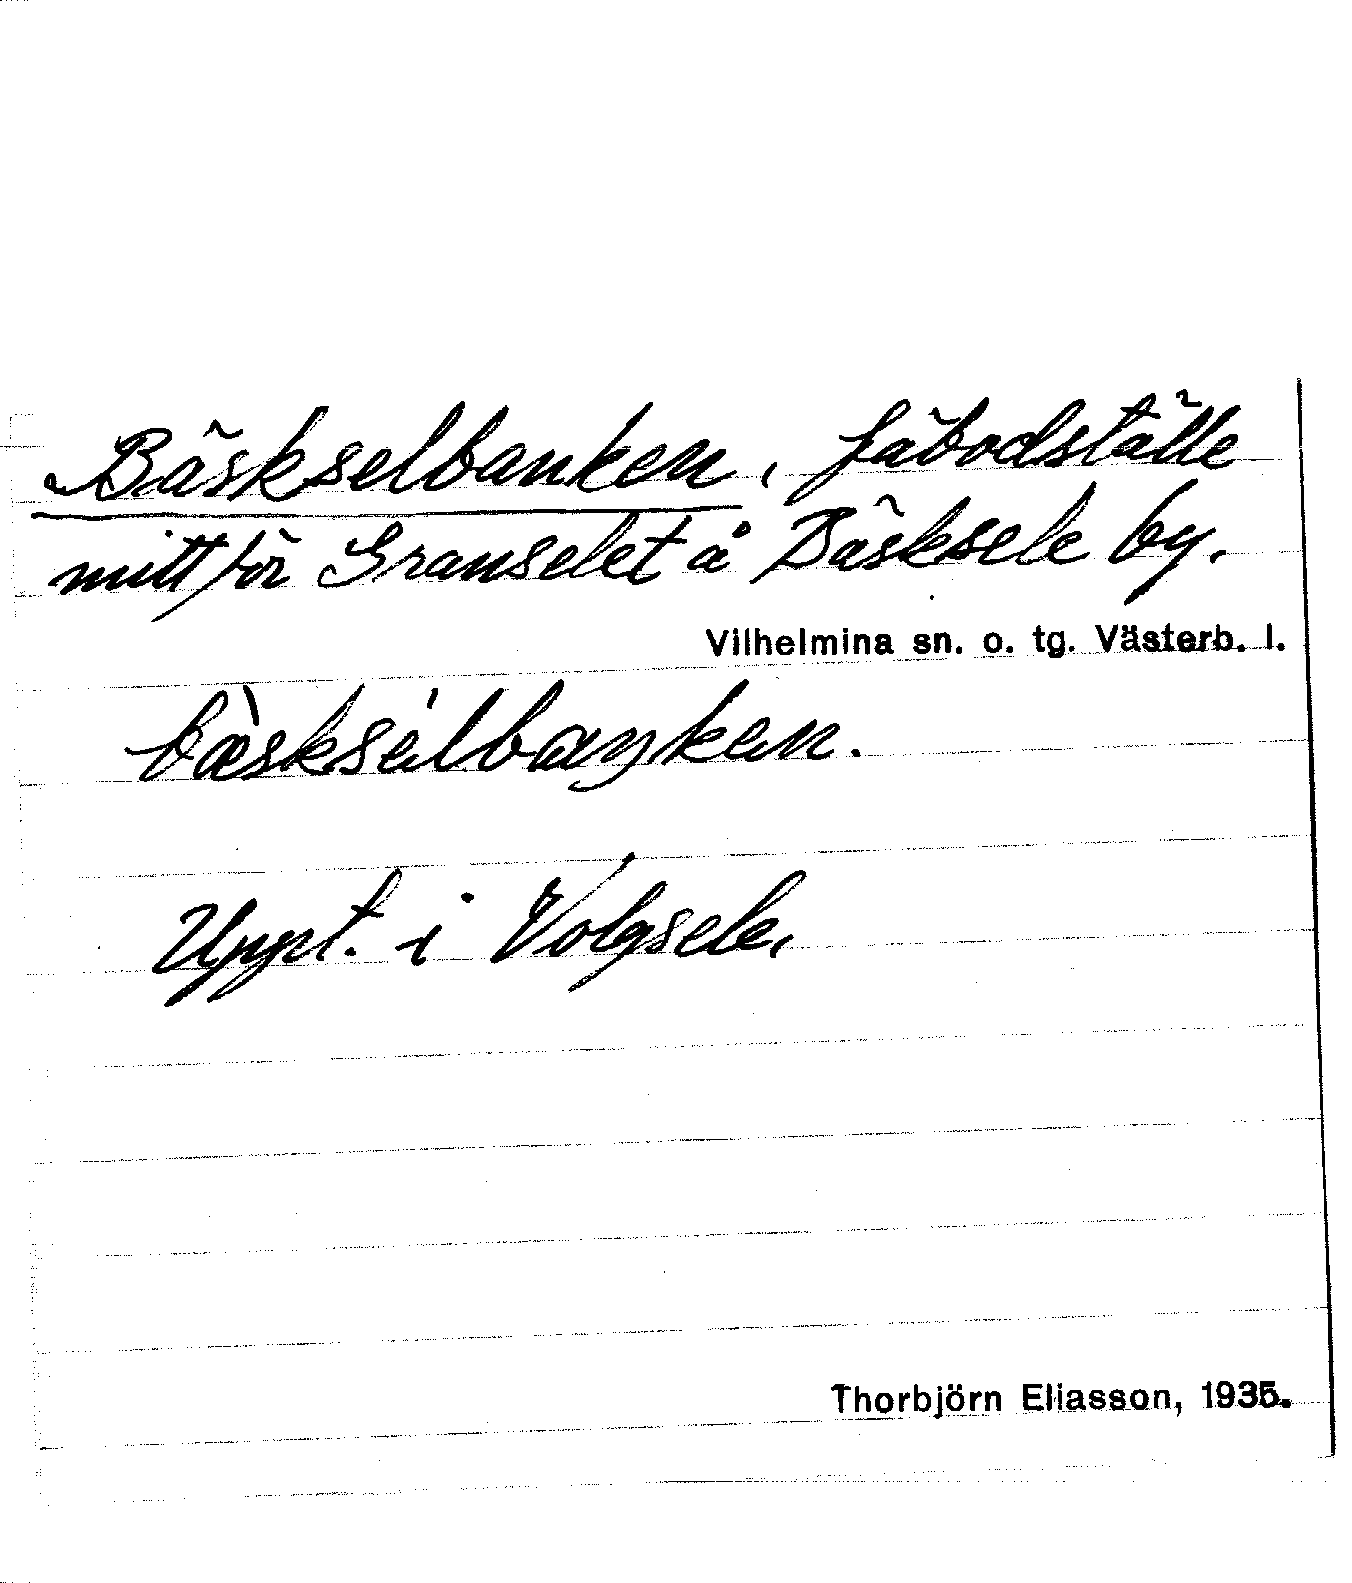 Bäskselbanken, fäbodställe
mitt för Granselet å Bäsksele by.
Vilhelmina sn. o. tg. Västerb. l.
bæ̀sksélbaŋken.
Uppt. i Volgsele.
Thorbjörn Eliasson, 1935.